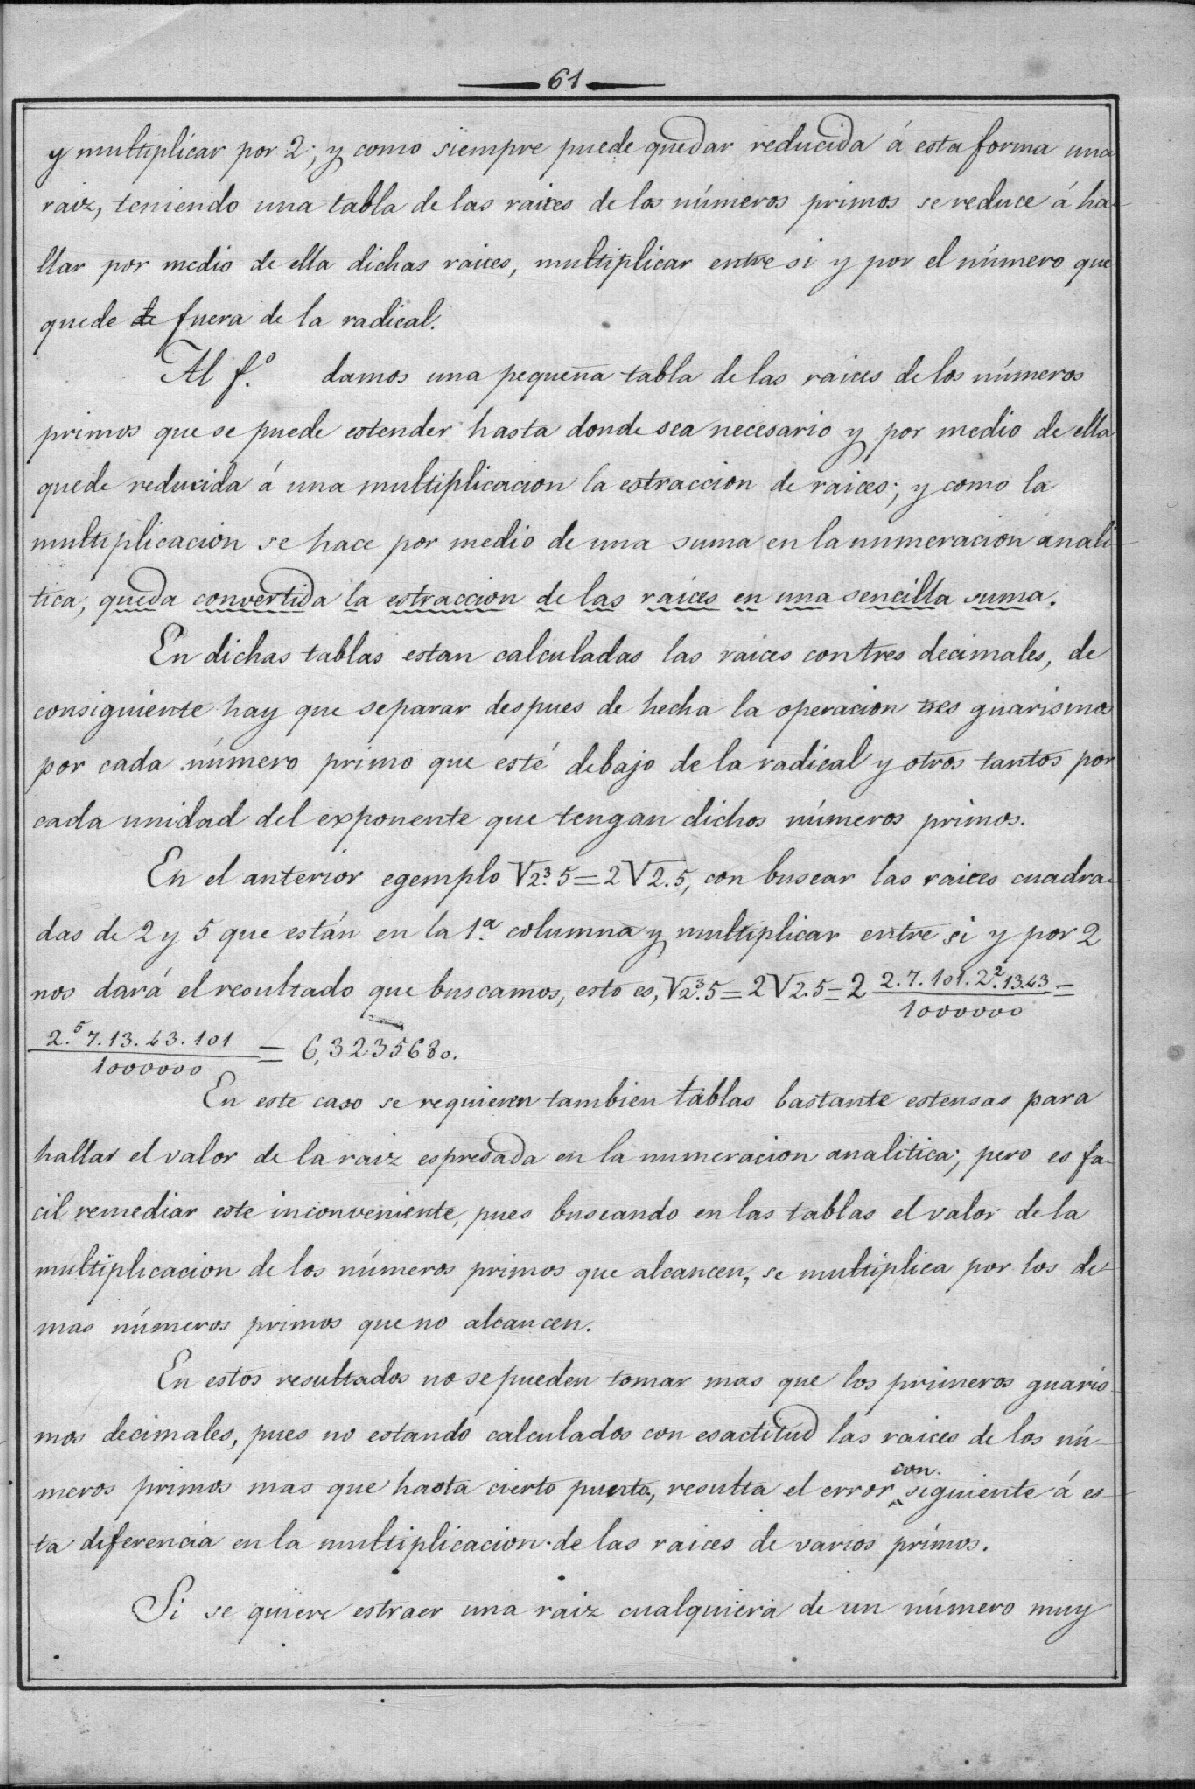 61
y multiplicar por 2; y como siempre puede quedar reducida á esta forma una
raiz, teniendo una tabla de las raices de los números primos se reduce á ha-
llar por medio de ella dichas raices, multiplicar entre si y por el número que
quede de fuera de la radical.
Al f.º damos una pequeña tabla de las raices de los números
primos que se puede estender hasta donde sea necesario y por medio de ella
quede reducida á una multiplicacion la estraccion de raices; y como la
multiplicacion se hace por medio de una suma en la numeracion anali-
tica, queda convertida la estraccion de las raices en una sencilla suma.
En dichas tablas estan calculadas las raices con tres decimales, de
consiguiente hay que separar despues de hecha la operacion tres guarismos
por cada número primo que esté debajo de la radical y otros tantos por
cada unidad del exponente que tengan dichos números primos.
En el anterior egemplo √2³.5=2√2.5, con buscar las raices cuadra-
das de 2 y 5 que están en la 1.ª columna y multiplicar entre si y por 2
nos dará el resultado que buscamos, esto es, √2³.5=2√2.5=2 2.7.101.2².13.43/1000000 =
2.⁵7.13.43.101/1000000 = 6,3235680.
En este caso se requieren tambien tablas bastante estensas para
hallar el valor de la raiz espresada en la numeracion analitica; pero es fa-
cil remediar este inconveniente, pues buscando en las tablas el valor de la
multiplicacion de los números primos que alcancen, se multiplica por los de-
mas números primos que no alcancen.
En estos resultados no se pueden tomar mas que los primeros guaris-
mos decimales, pues no estando calculados con esactitud las raices de los nú-
meros primos mas que hasta cierto punto, resulta el error con.siguiente á es-
ta diferencia en la multiplicacion de las raices de varios primos.
Si se quiere estraer una raiz cualquiera de un número muy